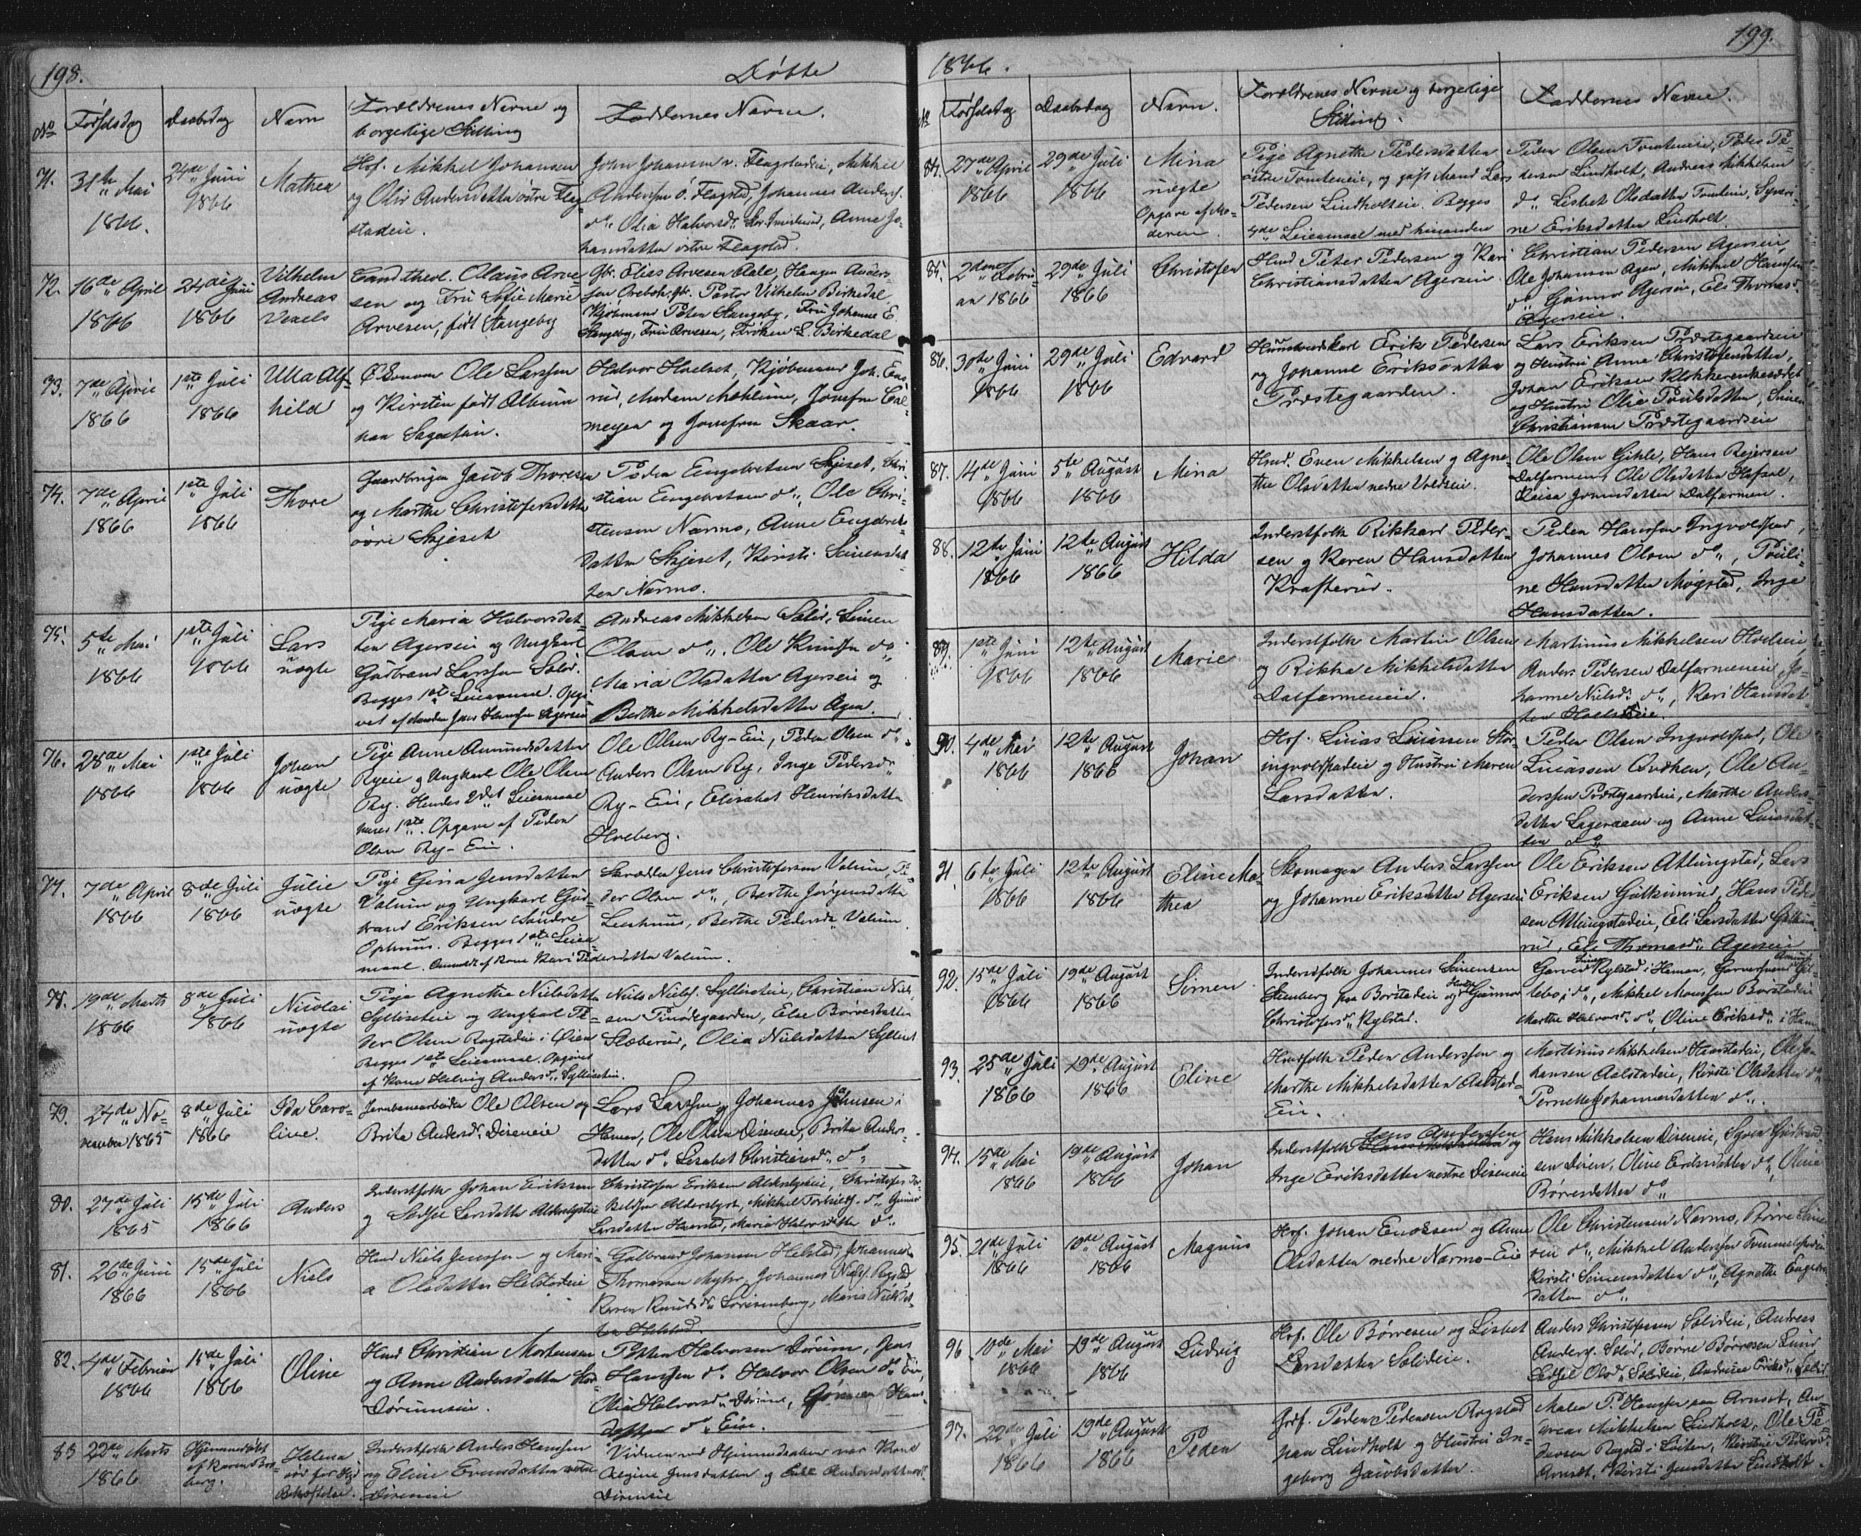 198.
Døbte
No
Fødselsdag
Daabsdag
Navn
Forældrenes Navne og
borgerlige Stilling
Faddernes Navne.
71.
31te Mai
1866.
24de Juni
1866
Mathea
Hof. Mikkel Johansen
og Olia Andersdatter østre Flag-
stadeie.
John Johansen v. Flagstadeie, Mikkel
Andersen ø. Flagstad, Johannes Anders.
do, Olia Halvorsd.
hannsdatter østre Flagstad.
72.
16de April
1866
24de Juni
1866
Vilhelm
Andreas
Vexels
Cand. theol. Olaus Arve-
sen og Fru Sofie Marie
Arvesen, født Stangeby
Gbr. Elias Arvesen Aale, Haagen Anders
Pastor Vilhelm Birkedal
Kjøbmann Peter Stangeby, Fru Johanne E
Stangeby, Fru Arvesen, Frøken L. Birkedal
73.
7de April
1866
1ste Juli
1866
Ulla Alf-
hild
Ole Larssen
og Kirsten født Album
paa Sagatun.
Halvor Hoelset, Kjøbmann Joh.
rud, Madam Mæhlum, Jomfru
meyer og Jomfru Skaar.
74.
7de April
1866
1ste Juli
1866
Thore
Gaardbruger Jacob Thoresen
og Marthe Christofersdatter
øvre Skjeset
Peder Engebretsen Skjeset, Chri-
stian Engebretsen do, Ole Chri-
stensen Narmo, Anne Engebrets
datter Skjeset, Kirsti Simensdat-
ter Narmo.
75.
5te Mai
1866
1ste Juli
1866
Lars
uægte
Pige Maria Halvorsdat-
ter Agerseie og Ungkarl
Gudbrand Larssen Solø.
Begges 1ste Leiermaal. Opgi-
vet af Manden Jens Hanssen Agerseie
Andreas Mikkelsen Solø, Simen
Olsen do. Ole Knudsen do
Maria Olsdatter Agerseie og
Berthe Mikkelsdatter Ager.
76.
28de Mai
1866
1ste Juli
1866
Johan
uægte
Pige Anne Amundsdatter
Ryeie og Ungkarl Ole Olsen
Ry. Hendes 2det Leiermaal
hans 1ste. Opgave af Peder
Olsen Ry-Eie.
Ole Olsen Ry-Eie, Peder Olsen do,
Anders Olsen Ry, Inge Pedersd.
Ry-Eie, Elisabet Henriksdatter
Hveberg.
77.
7de April
1866
8de Juli
1866
Julie
uægte
Pige Gina Jensdatter
Valum og Ungkarl Gud-
brand Eriksen Søndre
Ophuus. Begges 1ste Leier-
maal. Anmeldt af Kone Kari Pedersdatter Valum.
Jens Christofersen Valum, Pe-
der Olsen do, Berthe Jørgensdatter
Berthe Pedersd. Valum.
78.
19de Marts
1866
8de Juli
1866
Nicolai
uægte
Pige Agnethe Nielsdatter
Syllisetseie og Ungkarl Pe-
der Olsen Rogstadeie i
Begges 1ste Leiermaal. Opgivet
af Kone Helvig Andersd. Syllisetseie.
Niels Nielsen Syllisetseie, Christian Niel-
sen Else Børresdatter
Sloberud, Olia Nielsdatter Syllisetseie
79.
24de No-
vember 1865
8de Juli
1866
Ida Caro-
line.
Jernbanearbeider Ole Olsen og
Brita Andersd. Diseneie
Lars Larssen og Johannes Johnsen i
Hamar, Ole Olsen Disenenie, Brita Anders-
datter do, Lisabet Christiansd. do.
80.
27de Juli
1865
15de Juli
1866
Anders
Inderstfolk Johan Eriksen
og Sedsel Larsdatter Alderslysteie
Christofer Eriksen Alderslysteie, Christofer
Alderslyst, Mikkel do, Gunor
Larsdatter Haarstad, Maria Halvorsdatter do.
81.
26de Juni
1866
15de Juli
1866
Niels
Husmd Niels Jenssen og Mari-
a Olsdatter Helstadeie
Gulbrand Johansen Helstad, Johannes
Thomassen Myhr, Johannes Nielsen Rogstad
Karen Knudsd. Maria Nielsdat-
ter Helstad.
82.
4de Februar
1866
15de Juli
1866
Oline
Husmd Christian Mortensen
og Anne Andersdatter
Dørumseie.
Petter Halvorsen Dørum, Jens
Hanssen do, Halvor Olsen do Eie,
Olia Halvorsd. Dørum, Gunor Hans-
datter do Eie.
83
22de Marts
1866
Hjemmedøbt
af Karen
Helene
død før
Bekræftelse.
Inderstfolk Anders Hanssen
og Eline Evensdatter østre
Diseneie
Vidner ved Hjemmedaaben var Kone
Regine Jensdatter og Andersdatter
Diseneie
1866.
199.
No
Fødselsdag
Daabsdag
Navn.
Forældrenes Navne og borgerlige
Stilling.
Faddernes Navne.
84.
27de April
1866
29de Juli
1866
Mina
uægte
Opgave af Mo-
deren.
Pige Agnethe Pedersdatter
østre Tomteneie, og gift Mand Lars
Pedersen Lindholteie. Begges
4de Leiermaal med hinanden
Peder Olsen Tomteneie, Peder Pe-
dersen Lindholt, Andreas Mikkelsen
do, Lisbet Olsdatter Tomteneie, Syveri-
ne Eriksdatter Lindholt.
85.
2den Febru-
ar 1866
29de Juli
1866
Christofer
Husmd Peter Pedersen og Kari
Christiansdatter Agerseie.
Christian Pedersen Agerseie
Ole Johansen Ager, Mikkel Hanssen
do, Gunor Agerseie, Eli Thomasd.
Agerseie.
86.
30te Juni
1866
29de Juli
1866
Edvard
Huusmandskarl Erik Pedersen
og Johanne Eriksdatter
Præstegaarden.
Lars Eriksen Præstegaardseie
og Hustru Anne Christofersdatter,
Johan Eriksen Klokkerenkesædet
og Hustru Olia Poulsdatter, Simen
Christiansen Præstegaardseie
87.
14de Juni
1866
5te August
1866
Mina
Husmd. Even Mikkelsen og Agne-
the Olsdatter nedre Voldseie.
Ole Olsen Gihle, Hans Reiersen
Dalfarmen, Ole Olsdatter Hafsal,
Jonsdatter Dalfarmen.
88.
12te Juni
1866
12te August
1866
Hilda
Inderstfolk Rikkard Peder-
sen og Karen Hansdatter
Krafterud.
Peder Hanssen Ingvoldstad,
Johannes Olsen do, Pauli-
ne Hansdatter Mogstad, Inge
Hansdatter.
89.
1ste Juni
1866
12te August
1866
Marie
Inderstfolk Martin Olsen
og Rikka Mikkelsdatter
Dalfarmeneie.
Martinus Mikkelsen Hoelseie,
Anders Pedersen Dalfarmeneie, Jo-
hanne Nielsd. do, Kari Hansdat-
ter Hoelseie.
90.
4de Mai
1866
12te August
1866
Johan
Hof. Lucas Lucassen Stor-
ingvoldstadeie og Hustru Maren
Larsdatter.
Peder Olsen Ingvoldstad, Ole
Lucassen Ovdhen, Ole An-
derssen Præstegaardeie, Marthe Anders-
datter Lageraaen og Anne Lucasdat-
ter do.
91.
6te Juli
1866
12te August
1866
Eline Ma-
thea
Skomager Anders Larssen
og Johanne Eriksdatter Agerseie
Ole Eriksen Atlungstad, Lars
Eriksen Gulkinrud, Hans Peder-
sen Atlungstadeie, Eli Larsdatter Gulkin-
rud, Eli Thomasd. Agerseie
92.
15de Juli
1866
19de August
1866
Simen
Inderstfolk Johannes Simensen
Steenberg paa Borstadeie og Hustru Gunnor
Christofersd. Rylstad.
Garver Rylstad i Hamar, Garversvend
lebo, do, Mikkel Monssen Borstadeie
Marthe Halvorsd. do, Oline Eriksd. i Hamar
93.
25de Juli
1866
19de August
1866
Eline
Husfolk Peder Anderssen og
Marthe Mikkelsdatter Aalstad-
Eie.
Martinus Mikkelsen Haarstadeie, Ole Jo-
hansen Aalstadeie, Kirsti Olsdatter do,
Pernelle Johannesdatter do.
94.
15de Mai
1866
19de August
1866
Johan
Inderstfolk Jens Anderssen og
Inge Eriksdatter vestre Diseneie
Hans Mikkelsen Diseneie, Syver Gudbrand-
sen Disen, Oline Eriksdatter do, Olina
Børresdatter do.
95.
21de Juli
1866
19de August
1866
Magnus
Hof. Johan Enoksen og Anne
Olsdatter nedre Narmo-Eie
Ole Christensen Narmo, Børre Sim-
sen do, Mikkel Anderssen Tommelstadeie
Kirsti Simensdatter do, Agnethe Engebrets-
datter do.
96
10de Mai
1866
19de August
1866
Ludvig
Hof. Ole Børresen og Lisbet
Larsdatter Solideie.
Anders Christofersen Solideie, Andreas
Anders. Solid, Børre Børresen Lund
Sedsel Olsd. Solideie, Andrine Eriksd. Solid
97.
22de Juli
1866
19de August
1866
Peder
Gbf. Peder Pedersen Rogstad
paa Lindholt og Hustru In-
geborg Jacobsdatter.
Maler P. Hanssen paa Arnset, An-
dreas Mikkelsen Lindholt, Ole Pe-
dersen Rogstad i Løiten, Kirstine Pedersd.
Arnset, Kirsti Jensdatter Lindholt.